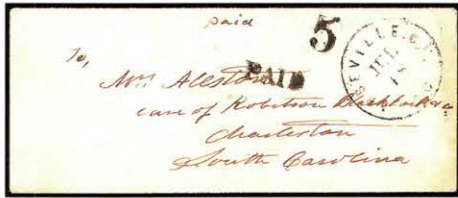 paid
5
JUL
18
PAID
To,
Mrs Allston
care of Robertson Blacklock &co
Charleston
South Carolina